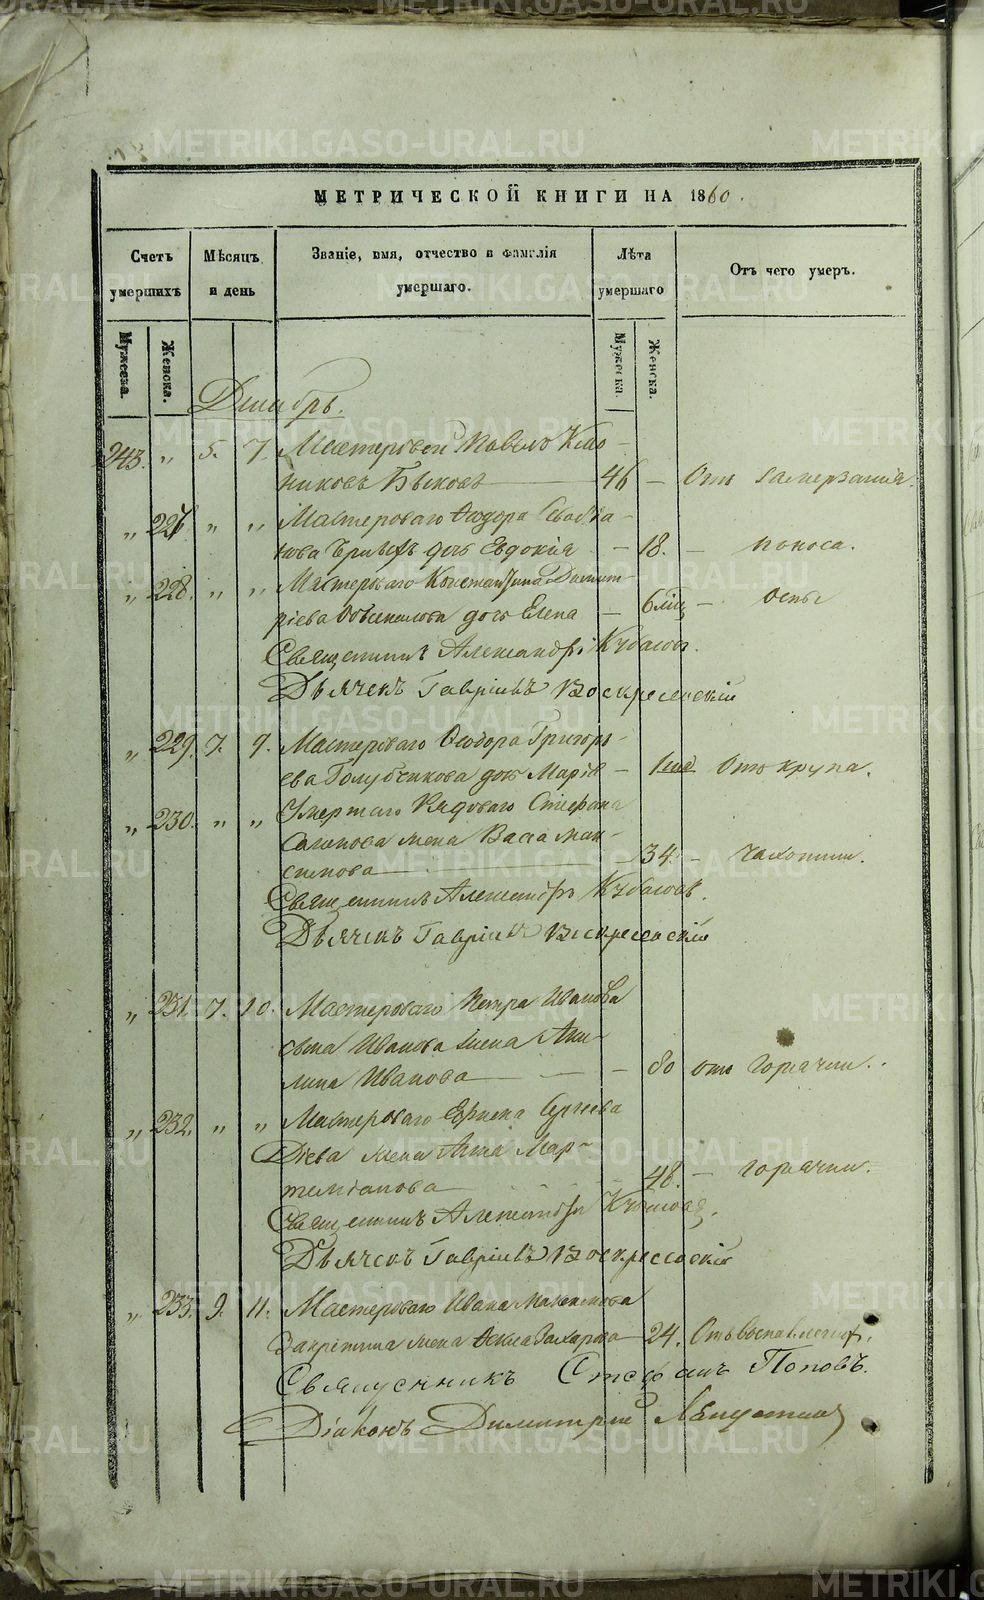 МЕТРИЧЕСКОЙ КНИГИ НА 1860.
Счетъ умершихъ
Мѣсяцъ и день
Званіе, имя, отчество и фамилія умершаго.
Лѣта умершаго
Отъ чего умеръ.
Мужеска.
Женска.
Мужеска.
Женска.
Декабрь.
243. " 5. 7. Мастеровой Павелъ
Быковъ 46 — Отъ замерзанія.
" 227. " " Мастероваго Ѳеодора
дочь Евдокія — 18. — поноса.
" 228. " " Мастероваго Константина Димит-
ріева дочь Елена — 6 мѣц — оспы
Священникъ Александръ Кубасовъ.
Дьячекъ Гавріилъ Воскресенскій
" 229. 7. 9. Мастероваго Ѳеодора Григорь-
ева Голубчикова дочь Марія — 1 год Отъ крупа.
" 230. " " Умершаго Рядоваго Стефана
жена Васса Мак-
симова — 34. — чахотки.
Священникъ Александръ Кубасовъ.
Дьячекъ Гавріилъ Воскресенскій
" 231. 7. 10. Мастероваго Петра Иванова
сына Иванова жена Аки-
лина Иванова — 80 отъ горячки.
" 232. " " Мастероваго Сергѣева
жена Анна Мар-
темьянова 48. — горячки.
Священникъ Александръ Кубасовъ.
Дьячекъ Гавріилъ Воскресенскій
" 233. 9. 11. Мастероваго Ивана Максимова
жена Ѳекла Захарова — 24. Отъ воспаленія.
Священникъ Стефанъ Поповъ.
Діаконъ Димитрій
METRIKI.GASO-URAL.RU